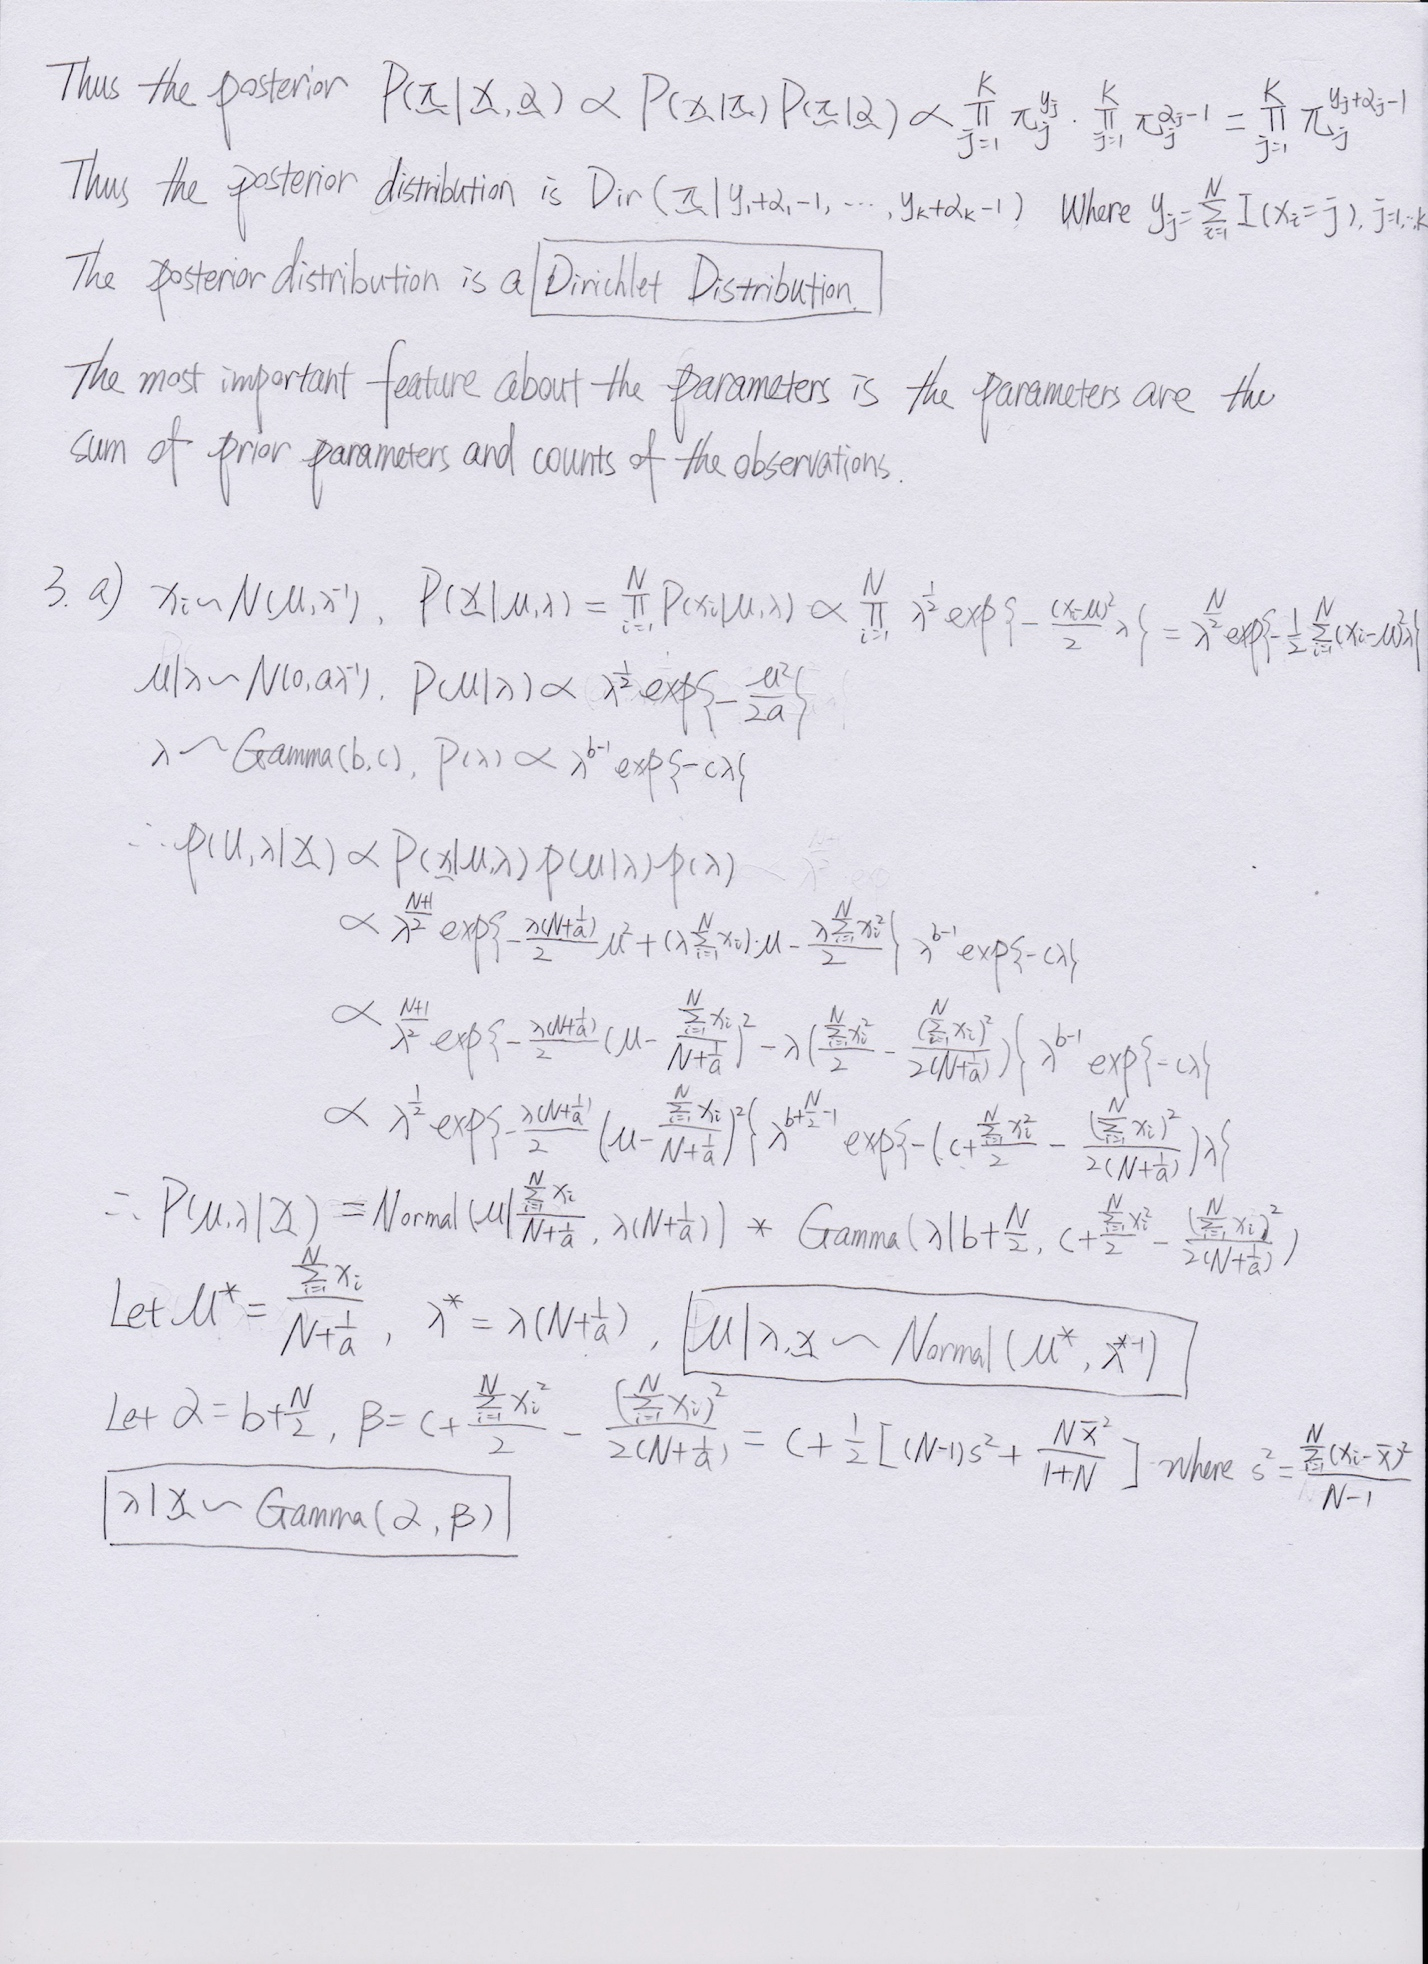 Thus the posterior P(π|x,α) ∝ P(x|π) P(π|α) ∝ ∏_{j=1}^{K} π_j^{y_j} · ∏_{j=1}^{K} π_j^{α_j-1} = ∏_{j=1}^{K} π_j^{y_j+α_j-1}
Thus the posterior distribution is Dir(π|y_1+α_1-1, ⋯, y_K+α_K-1) Where y_j=∑_{i=1}^{N} I(x_i=j), j=1,..k
The posterior distribution is a Dirichlet Distribution.
The most important feature about the parameters is the parameters are the
sum of prior parameters and counts of the observations.
3. a) x_i ~ N(μ,λ^{-1}), P(x|μ,λ) = ∏_{i=1}^{N} P(x_i|μ,λ) ∝ ∏_{i=1}^{N} λ^{1/2} exp{-(x_i-μ)^2/2 λ} = λ^{N/2} exp{-1/2 ∑_{i=1}^{N}(x_i-μ)^2 λ}
μ|λ ~ N(0,aλ^{-1}), P(μ|λ) ∝ λ^{1/2} exp{-μ^2/2a}
λ ~ Gamma(b,c), P(λ) ∝ λ^{b-1} exp{-cλ}
∴ p(μ,λ|x) ∝ P(x|μ,λ) p(μ|λ) p(λ)
∝ λ^{(N+1)/2} exp{-λ(N+1/a)/2 μ^2 + (λ∑_{i=1}^{N} x_i)·μ - λ∑_{i=1}^{N} x_i^2/2} λ^{b-1} exp{-cλ}
∝ λ^{(N+1)/2} exp{-λ(N+1/a)/2 (μ - ∑_{i=1}^{N} x_i/(N+1/a))^2 - λ(∑_{i=1}^{N} x_i^2/2 - (∑_{i=1}^{N} x_i)^2/2(N+1/a))} λ^{b-1} exp{-cλ}
∝ λ^{1/2} exp{-λ(N+1/a)/2 (μ - ∑_{i=1}^{N} x_i/(N+1/a))^2} λ^{b+N/2-1} exp{-(c+∑_{i=1}^{N} x_i^2/2 - (∑_{i=1}^{N} x_i)^2/2(N+1/a))λ}
∴ P(μ,λ|x) = Normal(μ|∑_{i=1}^{N} x_i/(N+1/a), λ(N+1/a)) * Gamma(λ|b+N/2, c+∑_{i=1}^{N} x_i^2/2 - (∑_{i=1}^{N} x_i)^2/2(N+1/a))
Let μ* = ∑_{i=1}^{N} x_i/(N+1/a), λ* = λ(N+1/a), μ|λ,x ~ Normal(μ*, λ*^{-1})
Let α = b+N/2, β = c+∑_{i=1}^{N} x_i^2/2 - (∑_{i=1}^{N} x_i)^2/2(N+1/a) = c+1/2[(N-1)s^2 + N x̄^2/(1+N)] where s^2 = ∑_{i=1}^{N}(x_i-x̄)^2/(N-1)
λ|x ~ Gamma(α, β)